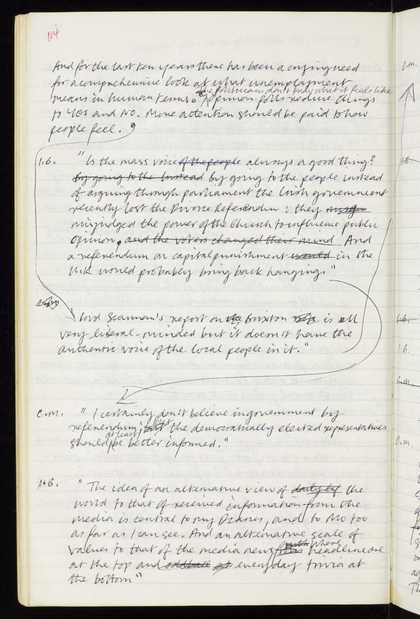 104
And for the last ten years there has been a crying need
for a comprehensive look at what unemployment
the politicians don't know what it feels like
means in human terms. Opinion polls reduce things
to yes and no. More attention should be paid to how
people feel."
I.G. "Is the mass voice of the people always a good thing?
by going to the instead by going to the people instead
of arguing through parliament the Irish government
recently lost the Divorce Referendum: they
misjudged the power of the Church to influence public
opinion. and the voters changed their mind And
a referendum on capital punishment would in the
U.K. would probably bring back hanging."
Lord Scarman's report on Brixton is all
very liberal-minded but it doesn't have the
authentic voice of the local people in it."
C.M. "I certainly don't believe in government by
referendum; but the democratically elected representatives
at least
should be better informed."
H.G. "The idea of an alternative view of the
world to that of received information from the
media is central to my Diaries, and to MO too
as far as I can see. And an alternative scale of
values to that of the media news headline one
at the top and everyday trivia at
the bottom"